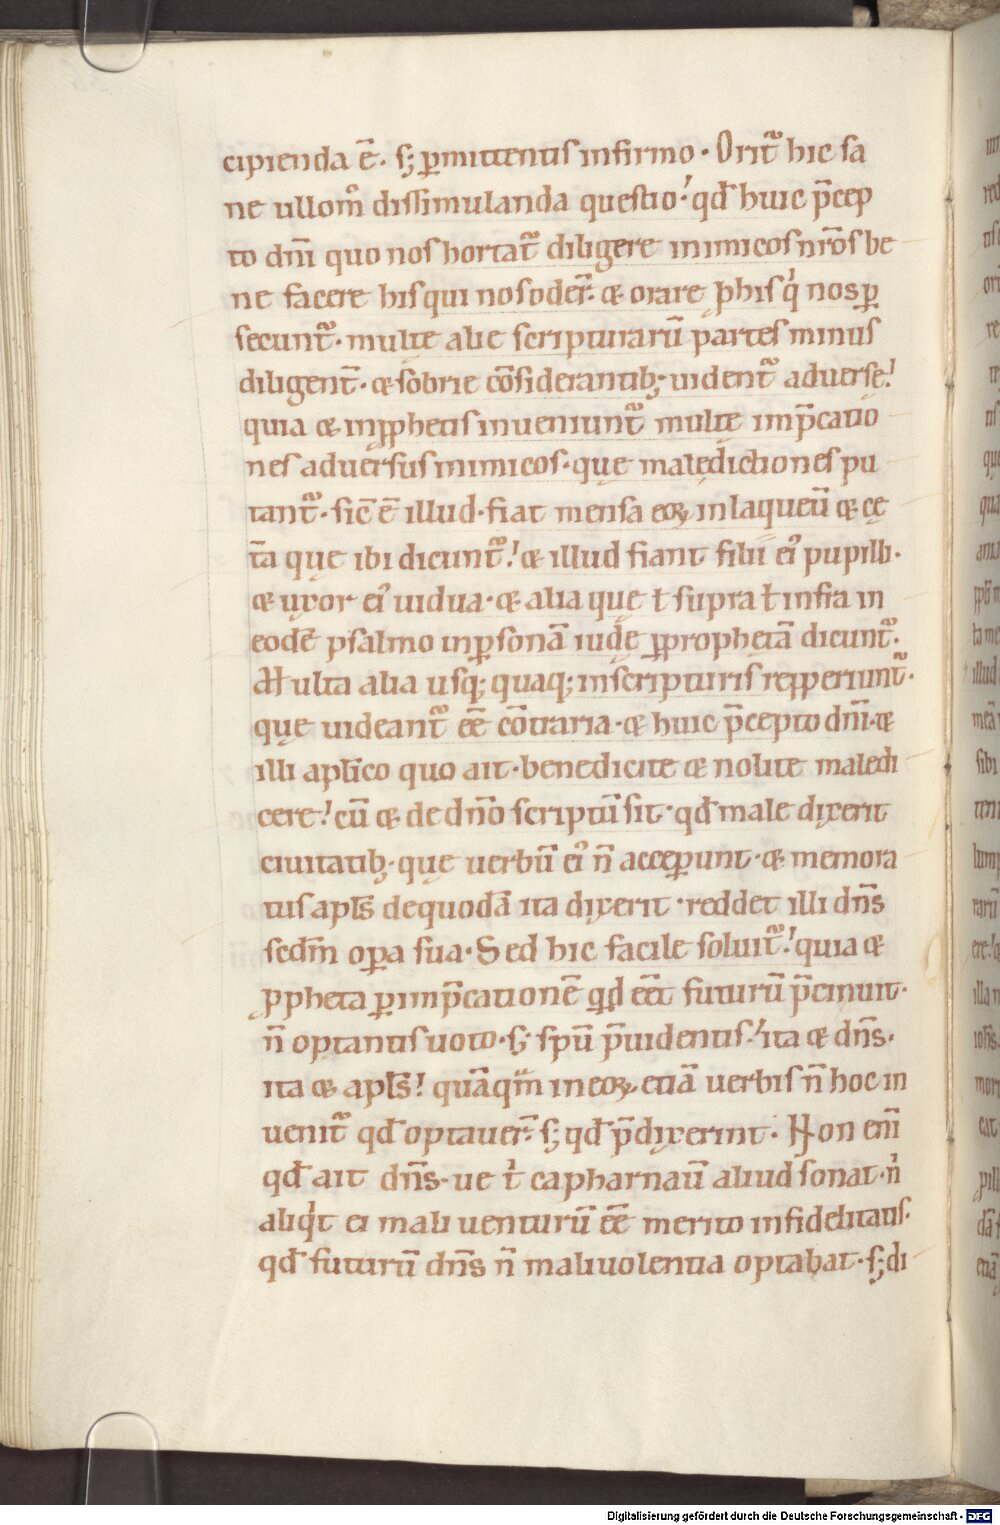 cipienda ē. s; ꝑmittentis infirmo. Orit᷑ hic sa
ne ullom̊ dissimulanda questio! qđ huic p̄cep
to dn̄i quo nos hortat᷑ diligere inimicos nr̄os be
ne facere his qui nos oder̄. & orare ꝓ his qͥ nos ꝑ
secunt᷑. multe alie scripturarū partes minus
diligent̄. & sobrie cōsiderantibꝫ uident᷑ aduerse!
quia & in ꝓphetis inueniunt᷑ multę imp̄catio
nes aduersus inimicos. quę maledictiones pu
tant᷑. sic̄ ē illud. fiat mensa eoꝝ in laqueū & cę
t̄a quę ibi dicunt᷑! & illud fiant filii ei᷒ pupilli.
& uxor ei᷒ uidua. & alia que ł supra ł infra in
eodē psalmo in ꝑsonā iudę ꝑ prophetā dicunt᷑.
Multa alia usq; quaq; in scripturis repperiunt᷑.
quę uideant᷑ eē cōtraria. & huic p̄cepto dn̄i. &
illi apl̄ico quo ait. benedicite & nolite maledi
cere! cū & de dn̄o scriptū sit. qđ male dixerit
ciuitatibꝫ. quę uerbū ei᷒ n̄ acceꝑunt. & memora
tus apl̄s de quodā ita dixerit. reddet illi dn̄s
scdm̄ oꝑa sua. Sed hic facile soluit᷑! quia &
ꝓpheta ꝑ imp̄cationē qđ eēt futurū p̄cinuit.
n̄ optantis uoto. s; spū p̄uidentis! ita & dn̄s.
ita & apl̄s! quāqm̄ in eoꝝ etiā uerbis n̄ hoc in
uenit᷑ qđ optauer̄. s; qđ p̄dixerint. Non eni̅
qđ ait dn̄s. ue tͥ capharnaū aliud sonat. nͥ
aliqͥt ei mali uenturū eē merito infidelitatis.
qđ futurū dn̄s n̄ maliuolentia optabat. s; di
Digitalisierung gefördert durch die Deutsche Forschungsgemeinschaft - DFG